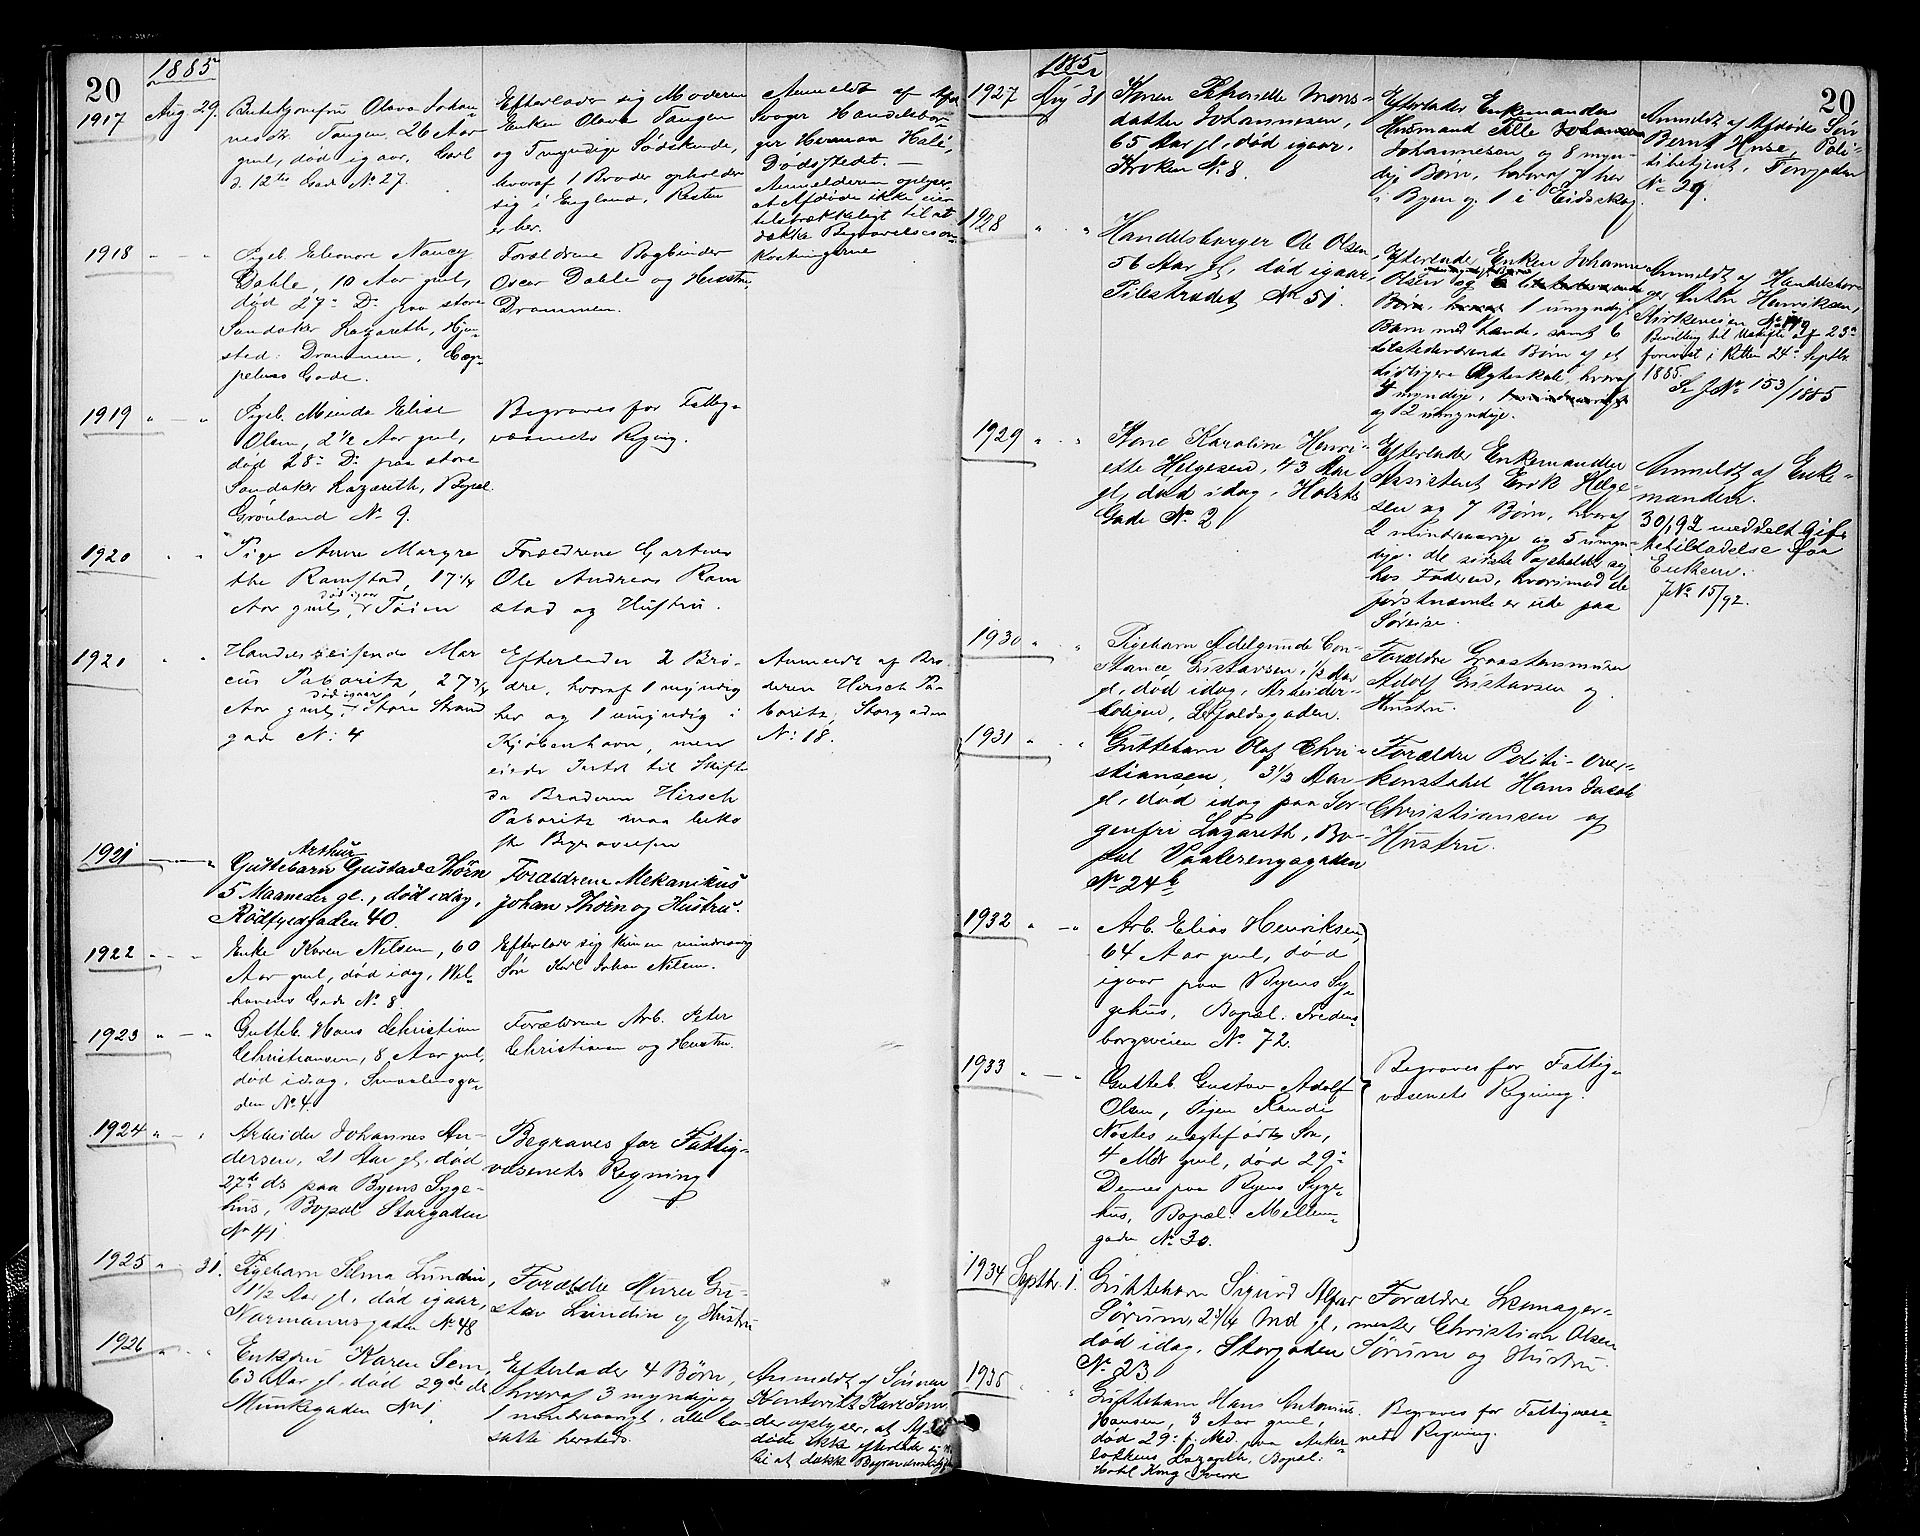 20
1885
1917 Aug 29.
Olava Johan-
nesdtr. Tangen, 26 Aar
gml, død igaar, Carl
d. 12tes Gade No 27.
Efterlader sig Moderen
Enken Olava Tangen
og Sødskende,
hvoraf 1 Broder opholder
sig i England, Resten
er her.
Anmeldt af
Svoger Handelsbor-
ger Herman
Dødsstedet. —
Anmelderen oplyser,
at Afdøde ikke eier
tilstrækkeligt til at
dække Begravelsesom-
kostningerne
1918 " — "
Pigeb. Eleonore Nancy
Dahle, 10 Aar gml,
død 27de Ds paa store
Sandaker Lazareth, Hjem-
sted: Drammen, Cap-
pelens Gade.
Forældrene Bogbinder
Oscar Dahle og Hustru,
Drammen.
1919 " — "
Pigeb. Minda Elise
Olsen, 2 1/2 Aar gml,
død 28de Ds paa store
Sandaker Lazareth, Bopæl
Grønland No 9.
Begraves for Fattig-
væsenets Regning.
1920 " "
Pige Anne Magre-
the Ramstad, 17 1/4
Aar gml, død igaar Tøien
Forældrene Gartner
Ole Andreas Ram
stad og Hustru.
1921 " "
Handelsreisende Mar
cus Paboritz, 27 3/4
Aar gml, død igaar Store Strand
gade No 4
Efterlader 2 Brø-
dre, hvoraf 1 myndig
her og 1 umyndig i
Kjøbenhavn, men
eiede Intet til Skifte
da Broderen Hirsch
Paboritz maa beko
ste Begravelsen
Anmeldt af Bro-
deren Hirsch Pa-
boritz, Storgaden
No 18.
1921 " — "
Guttebarn Arthur Gustad Thørn
5 Maaneder gl., død idag,
Rødfyldgaden 40.
Forældrene Mekanikus
Johan Thørn og Hustru.
1922 " — "
Enke Karen Nilsen, 60
Aar gml, død idag, Wel-
havens Gade No 8
Efterlader sig kun en mindreaarig
Søn Karl Johan Nilsen.
1923 " — "
Gutteb. Hans Christian
Christiansen, 8 Aar gml,
død idag, Smaalensga-
den No 4.
Forældrene Arb. Peter
Christiansen og Hustru.
1924 " — "
Arbeider Johannes An-
dersen, 21 Aar gl. død
27de ds paa Byens Syge-
hus, Bopæl Storgaden
No 41
Begraves for Fattig-
væsenets Regning
1925 " 31.
Pigebarn Selma Lundin,
1 1/2 Aar gl, død igaar,
Normannsgaden No 48
Forældre Murer Gu-
stav Lundin og Hustru
1926 " "
Enkefru Karen Sem,
63 Aar gl. død 29de ds
Munkegaden No 1.
Efterlader 4 Børn,
hvoraf 3 myndige og
1 mindreaarigt, alle bo-
satte hersteds.
Anmeldt af Sønnen
Kontorist Karl Sem,
der oplyser, at Af-
døde ikke efterlader sig
til at dække
20
1885
1927 Aug 31
Konen Mons-
datter Johannesen,
65 Aar gl, død igaar,
Kroken No 8.
Efterlader Enkemanden
Husmand
Johannesen, og 8 myn-
dige Børn, hvoraf 7 her
i Byen og 1 i Eidskog.
Anmeldt af Afdødes Søn
Bernt Huse, Poli-
tibetjent, Torvgaden
No 29.
1928 " "
Handelsborger Ole Olsen,
56 Aar gl, død igaar,
Pilestrædet No 51.
Efterlader Enken Johanne
Olsen og
Børn, hvoraf 1 umyndigt
Barn med hende, samt 6
tilstedeværende Børn af et
tidligere Ægteskab, hvoraf
4 myndige,
og 2 umyndige.
Anmeldt af Handelsbor-
ger Anton Henriksen,
Kirkeveien No
Bevilling til Uskifte af 23de
forevist i Retten 24de Septbr
1885.
Se J No 153/1885
1929 " "
Kone Karoline Henri-
ette Helgesen, 43 Aar
gl, død idag, Holsts
Gade No 2
Efterlader Enkemanden
Assistent Erik Helge-
sen og 7 Børn, hvoraf
2 mindreaarige og 5 umyn-
dige. De sidste opholder sig
hos Faderen, hvorimod de
førstnævnte er ude paa
Søreise.
Anmeldt af Enke-
manden.
30/1 92 meddelt Gif-
termaalstilladelse
J No 15/92.
1930 " "
Pigebarn Adelgunde Con-
stance Gustavsen, 1/2 Aar
gl, død idag, Arbeider-
boligen,
Forældre Graastensmurer
Adolf Gustavsen og
Hustru.
1931 " "
Guttebarn Olaf Chri-
stiansen, 3 1/3 Aar
gl, død idag paa Sor-
genfri Lazareth, Bo-
pæl Vaalerengagaden
No 24b
Forældre Politi-over-
konstabel Hans Jacob
Christiansen og
Hustru.
1932 " — "
Arb. Elias Henriksen,
64 Aar gml, død
igaar paa Byens Sy-
gehus, Bopæl: Fredens-
borgveien No 72.
1933 " — "
Gutteb. Gustav Adolf
Olsen, Pigen Randi
Nostes uægtefødte Søn,
4 Mdr gml, død 29de
Dennes paa Byens Syge-
hus, Bopæl: Mellem-
gaden No 30.
Begraves for Fattig-
væsenets Regning.
1934 Septbr. 1.
Guttebarn Sigurd Alfar
Sørum, 2 3/4 Md gl,
død idag, Storgaden
No 23
Forældre Skomager-
mester Christian Olsen
Sørum og Hustru.
1935 "
Guttebarn Hans Antonius
Hansen, 3 Aar gml,
død 29de f. Md. paa Anker-
løkkens Lazareth, Bopæl:
Hotel Kong Sverre
Begraves for Fattigvæse-
nets Regning.